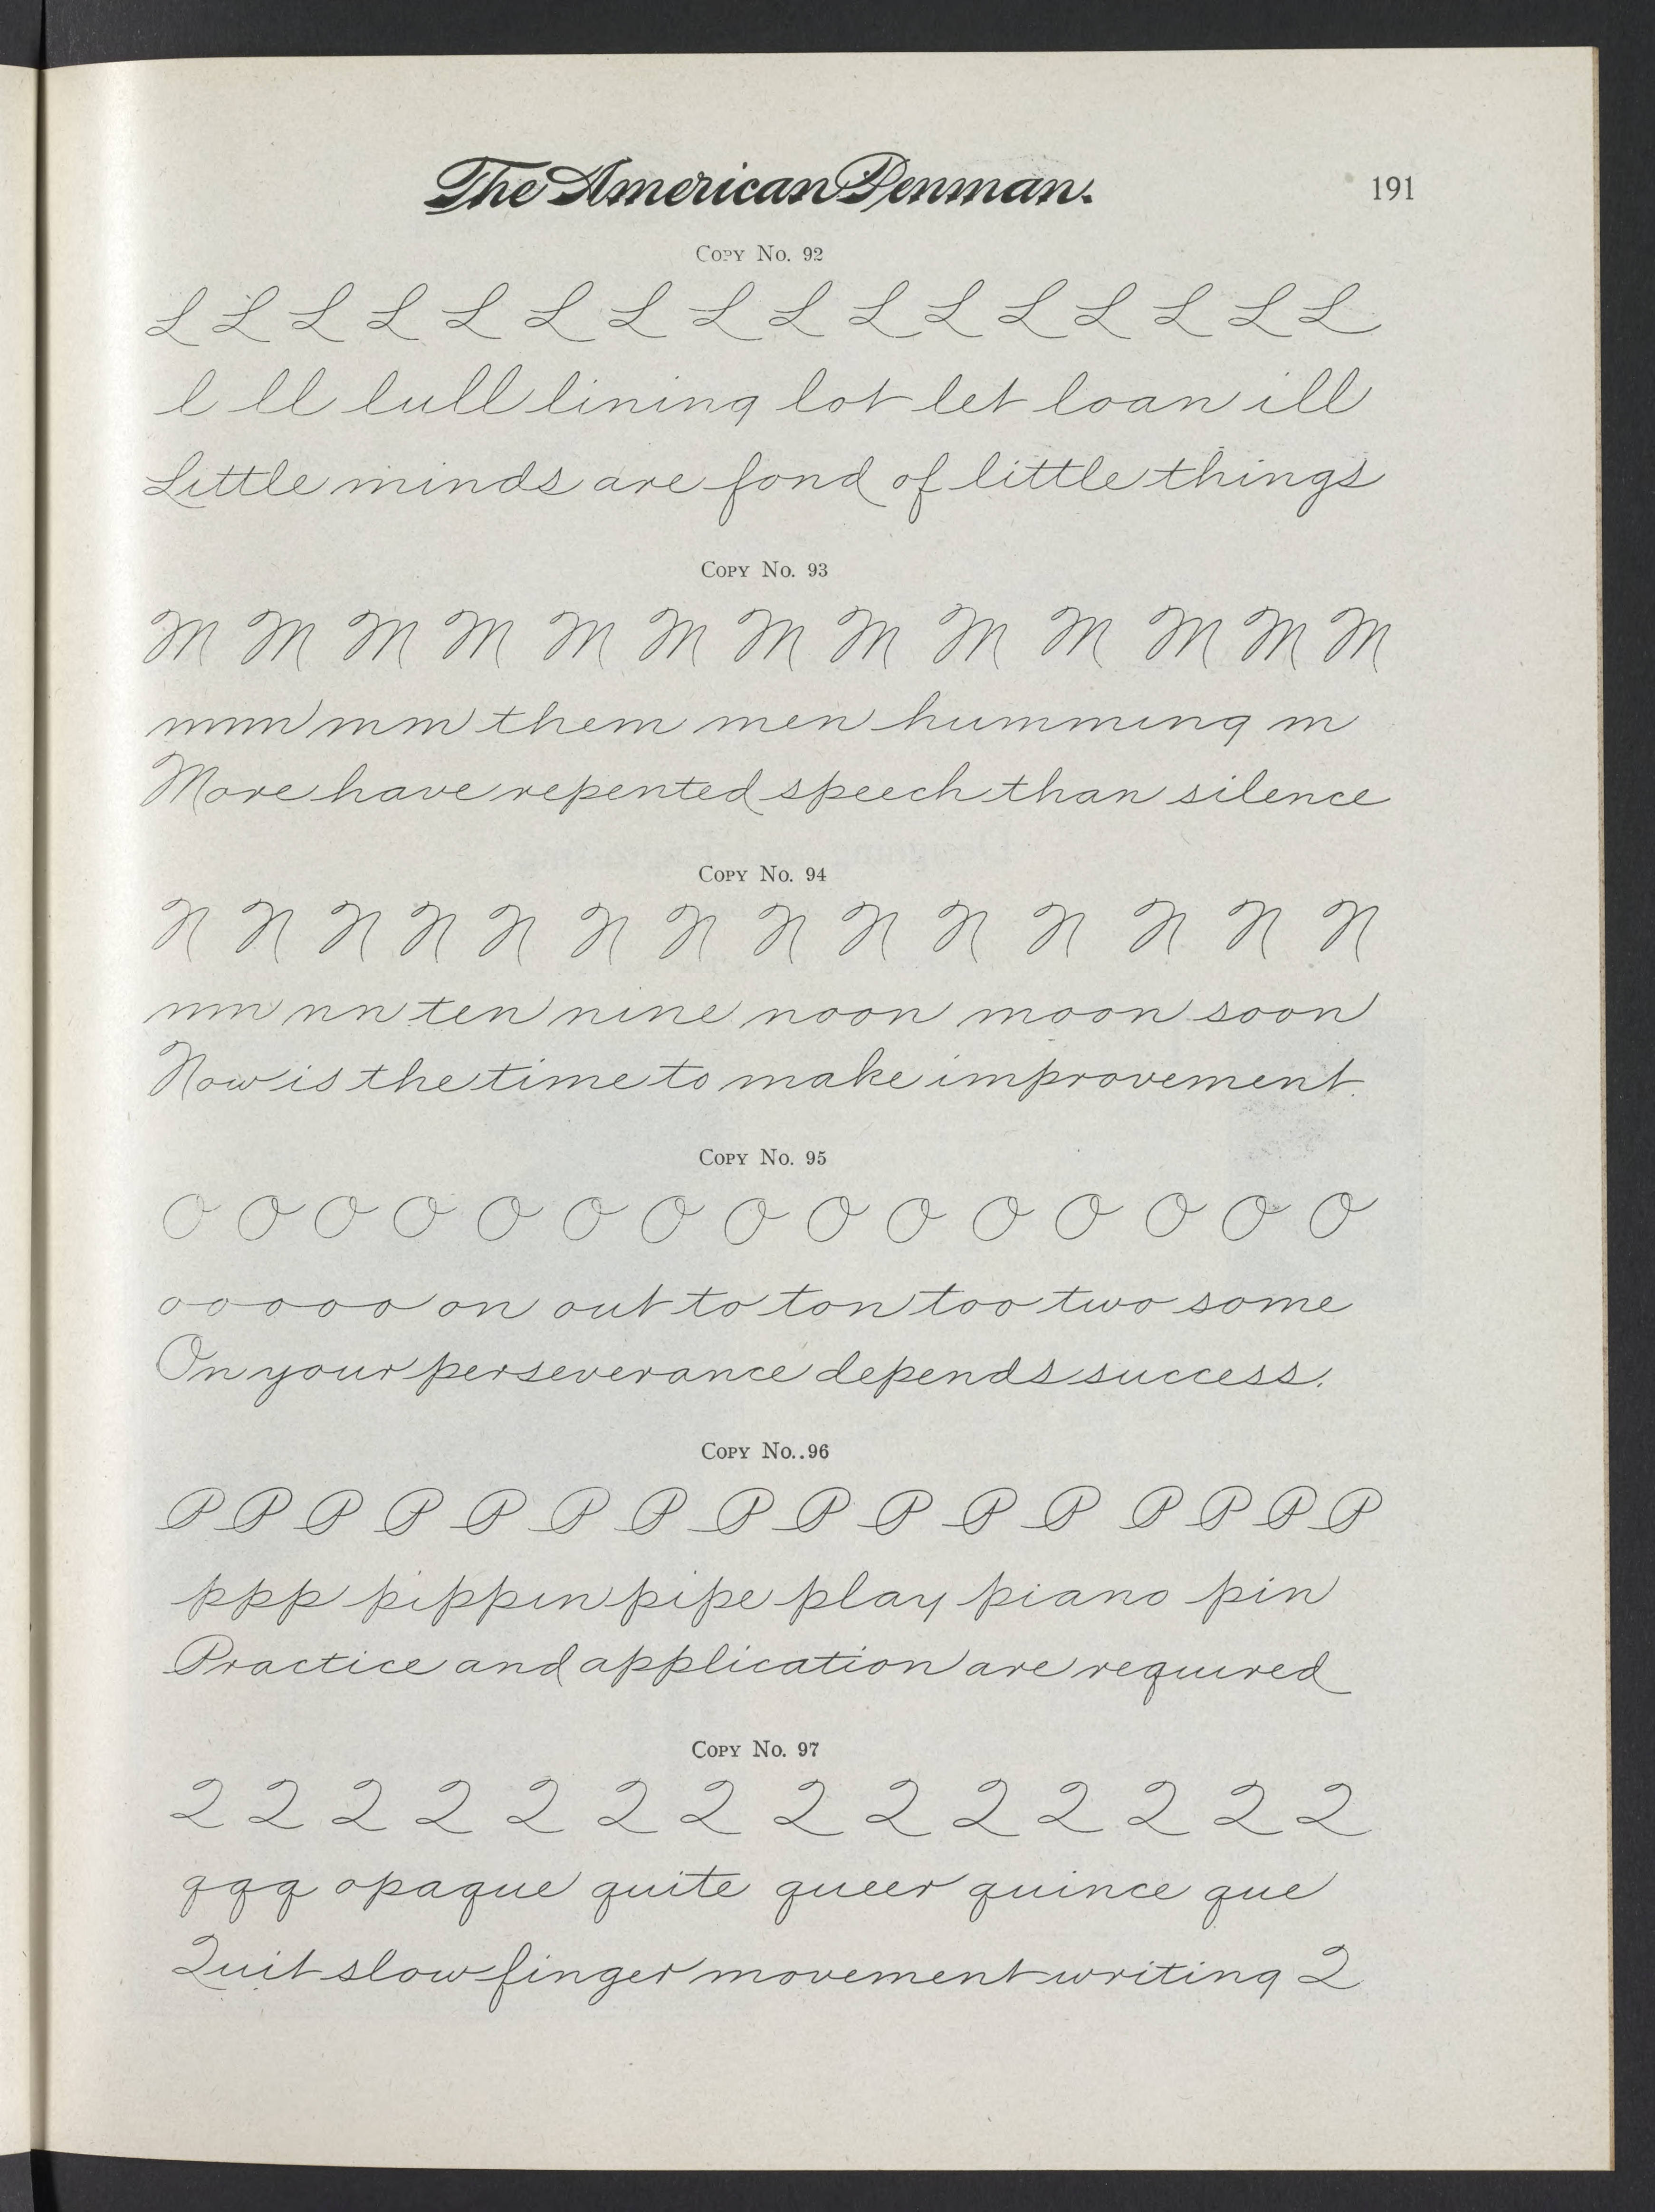 The American Penman.
191
Copy No. 92
L L L L L L L L L L L L L L L L
l ll lull lining lot let loan ill
Little minds are fond of little things
Copy No. 93
M M M M M M M M M M M M M
mmm mm them men humming m
More have repented speech than silence
Copy No. 94
N N N N N N N N N N N N N N
nnn nn ten nine noon moon soon
Now is the time to make improvement.
Copy No. 95
O O O O O O O O O O O O O O O
o o o o o on out to ton too two some
On your perseverance depends success.
Copy No..96
P P P P P P P P P P P P P P P P
ppp pippin pipe play piano pin
Practice and application are required
Copy No. 97
Q Q Q Q Q Q Q Q Q Q Q Q Q Q
qqq opaque quite queer quince que
Quit slow finger movement writing Q